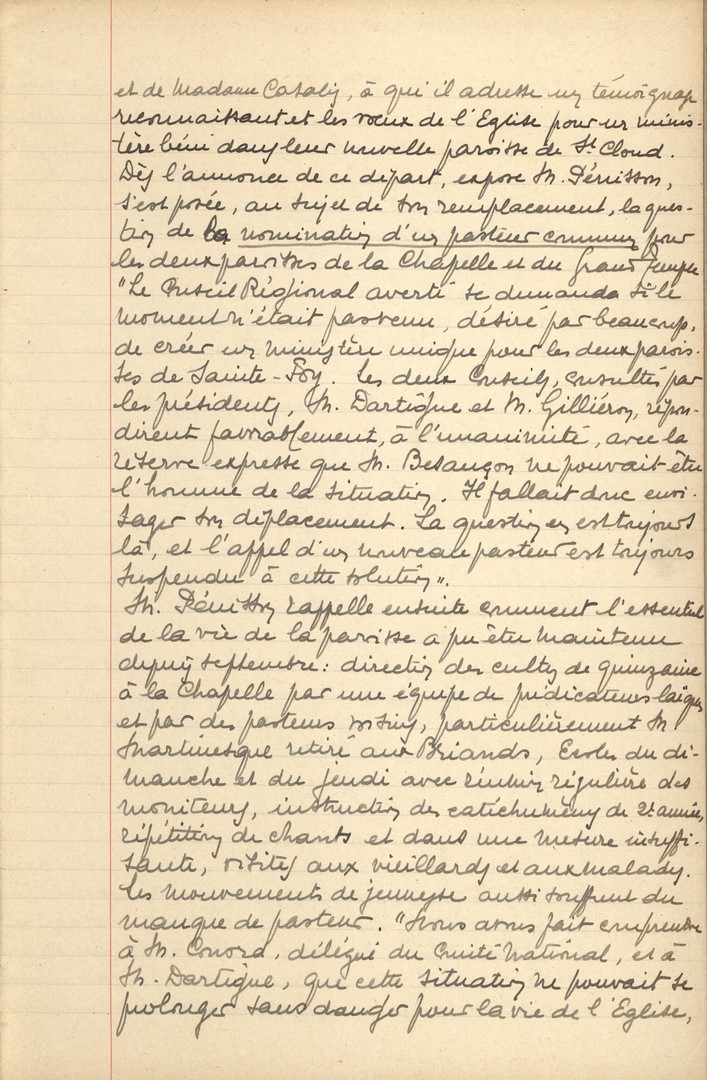 et de Madame Casalis, à qui il adresse un témoignage
reconnaissant et les vœux de l'Eglise pour un minis-
tère béni dans leur nouvelle paroisse de St Cloud.
Dès l'annonce de ce départ, expose M. Pénisson,
s'est posée, au sujet de son remplacement, la ques-
tion de la nomination d'un pasteur commun pour
les deux paroisses de la Chapelle et du Grand Temple
"Le Conseil Régional averti se demanda si le
moment n'était pas venu, désiré par beaucoup,
de créer un ministère unique pour les deux parois-
ses de Sainte-Foy. Les deux Conseils, consultés par
les présidents, M. Dartigue et M. Gilliéron, répon-
dirent favorablement, à l'unanimité, avec la
réserve expresse que M. Besançon ne pouvait être
l'homme de la situation. Il fallait donc envi-
sager son déplacement. La question en est toujours
là, et l'appel d'un nouveau pasteur est toujours
suspendu à cette solution".
M. Pénisson rappelle ensuite comment l'essentiel
de la vie de la paroisse a pu être maintenu
depuis septembre : direction des cultes de quinzaine
à la Chapelle par une équipe de prédicateurs laïques
et par des pasteurs voisins, particulièrement M.
Martinesque retiré aux Briands, Ecoles du di-
manche et du jeudi avec réunion régulière des
moniteurs, instruction des catéchumènes de 2e année,
répétition de chants et dans une mesure insuffi-
sante, visites aux vieillards et aux malades.
Les mouvements de jeunesse aussi souffrent du
manque de pasteur. "Nous avons fait comprendre
à M. Conord, délégué du Comité National, et à
M. Dartigue, que cette situation ne pouvait se
prolonger sans danger pour la vie de l'Eglise,